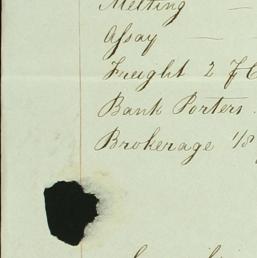 Melting —
Assay —
Freight 2
Bank Porters
Brokerage 1/8